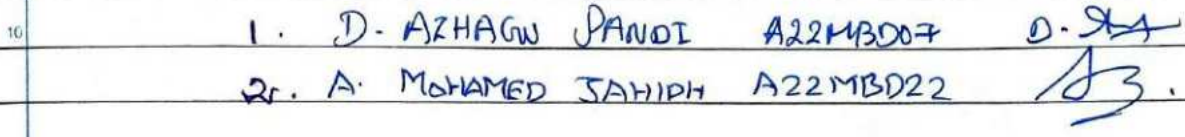 10
1. D. AZHAGU PANDI A22MBD07
2. A. MOHAMED JAHIDH A22MBD22